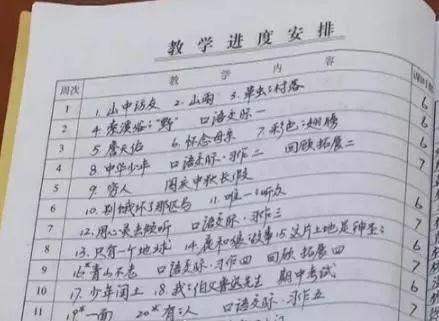 教学进度安排
周次 教学内容
1 1.山中访友 2.山雨 3.草虫的村落 6
2 4.索溪峪的"野" 口语交际一 6
3 5.詹天佑 6.怀念母亲 7.彩色的翅膀 7
4 8.中华少年 口语交际·习作二 回顾拓展二 6
5 9.穷人 国庆中秋长假
6 10.别饿坏了那匹马 11.唯一的听众 6
7 12.用心灵去倾听 口语交际·习作三
8 13.只有一个地球 14.鹿和狼的故事 15.这片土地是神圣的
9 16*青山不老 口语交际·习作四 回顾拓展四
10 17.少年闰土 18.我的伯父鲁迅先生 期中考试
11 19*一面 20*有的人 口语交际·习作五